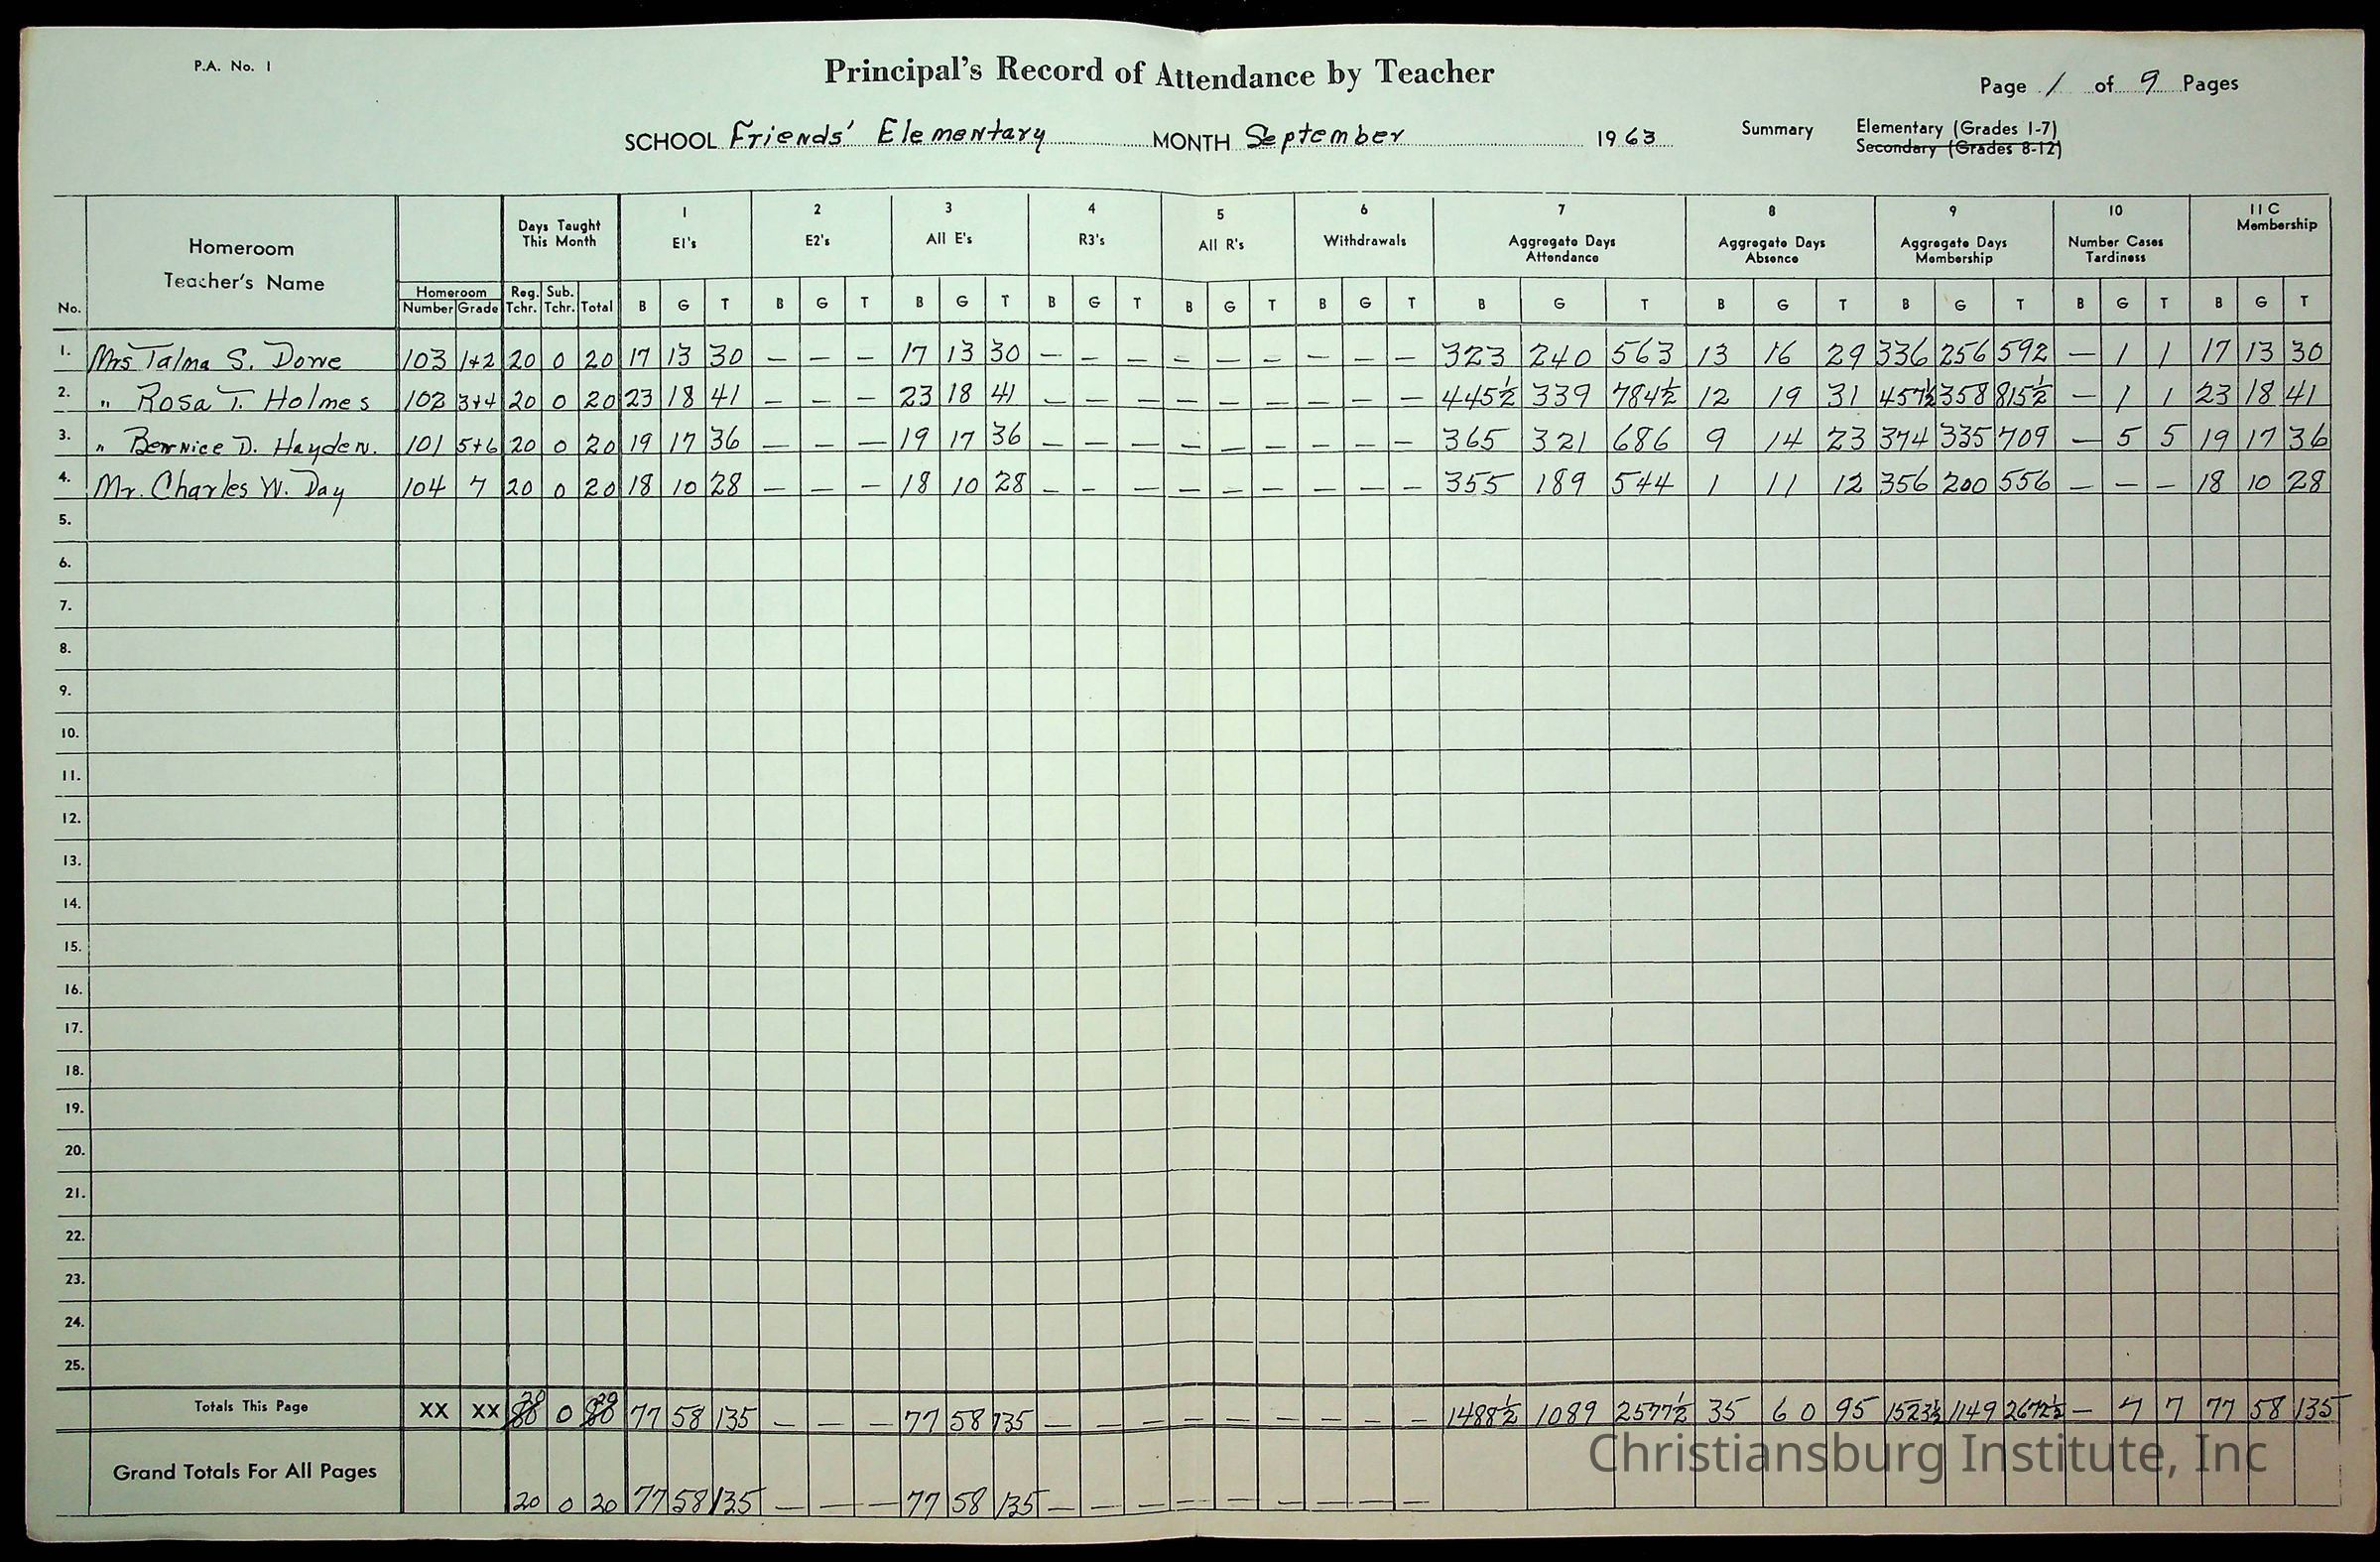 P.A. No. 1
Principal's Record of Attendance by Teacher
Page 1 of 9 Pages
SCHOOL Friends' Elementary MONTH September 1963 Summary Elementary (Grades 1-7)
Secondary (Grades 8-12)
No. Homeroom Teacher's Name Homeroom Number Grade Days Taught This Month Reg. Tchr. Sub. Tchr. Total 1 E1's 2 E2's 3 All E's 4 R3's 5 All R's 6 Withdrawals 7 Aggregate Days Attendance 8 Aggregate Days Absence 9 Aggregate Days Membership 10 Number Cases Tardiness 11C Membership
B G T B G T B G T B G T B G T B G T B G T B G T B G T B G T B G T
1. Mrs Talma S. Dowe 103 1+2 20 0 20 17 13 30 — — — 17 13 30 — — — — — — — — — 323 240 563 13 16 29 336 256 592 — 1 1 17 13 30
2. " Rosa T. Holmes 102 3+4 20 0 20 23 18 41 — — — 23 18 41 — — — — — — — — — 445½ 339 784½ 12 19 31 457½ 358 815½ — 1 1 23 18 41
3. " Bernice D. Hayden. 101 5+6 20 0 20 19 17 36 — — — 19 17 36 — — — — — — — — — 365 321 686 9 14 23 374 335 709 — 5 5 19 17 36
4. Mr. Charles W. Day 104 7 20 0 20 18 10 28 — — — 18 10 28 — — — — — — — — — 355 189 544 1 11 12 356 200 556 — — — 18 10 28
5.
6.
7.
8.
9.
10.
11.
12.
13.
14.
15.
16.
17.
18.
19.
20.
21.
22.
23.
24.
25.
Totals This Page XX XX 20 80 0 20 80 77 58 135 — — — 77 58 135 — — — — — — — — — 1488½ 1089 2577½ 35 60 95 1523½ 1149 2672½ — 7 7 77 58 135
Grand Totals For All Pages 20 0 20 77 58 135 — — — 77 58 135 — — — — — — — — —
Christiansburg Institute, Inc